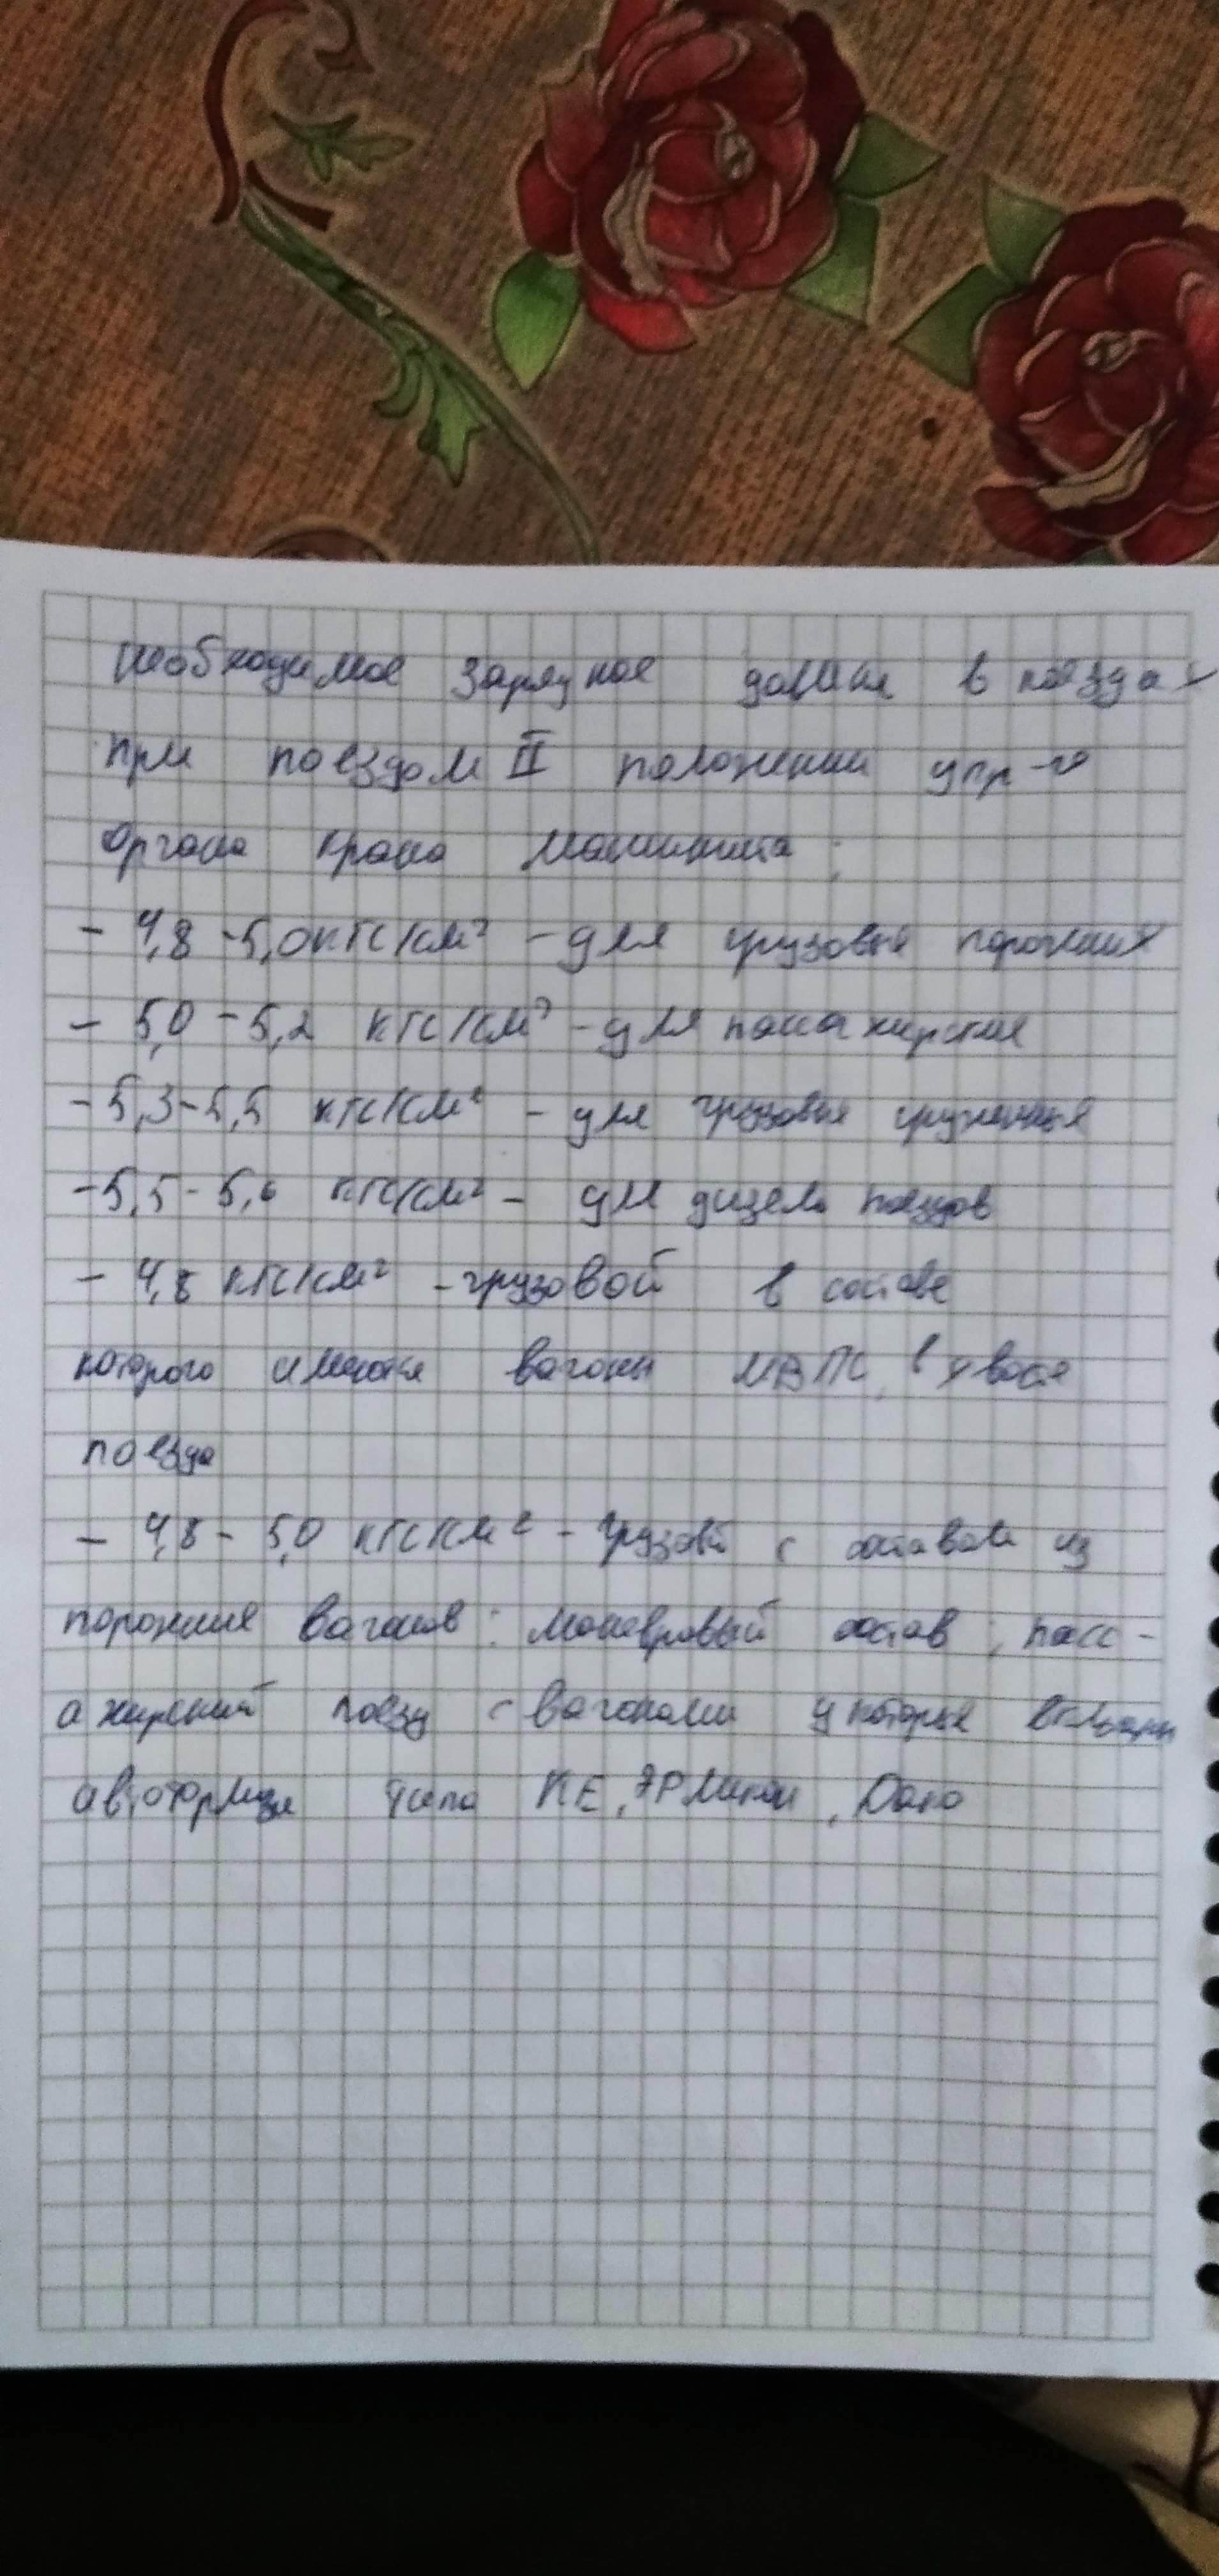 Необходимое зарядное давние в поездах
при поездом II положении упр-го
Органа крана Машиниста;
- 4,8 - 5,0 кгс/см² - для грузовые порожних
- 5,0 - 5,2 кгс/см² - для пассажирские
- 5,3 - 5,5 кгс/см² - для грузовые груженные
- 5,5 - 5,6 кгс/см² - для дизель поездов
- 4,8 кгс/см² - грузовой в составе
которого имеются вагоны МВПС, в хвосте
поезда
- 4,8 - 5,0 кгс/см² - Грузовой с составом из
порожние вагонов: маневровый состав; пасс-
ажирский поезд с вагонами у которые включены
автотормоза типа КЕ, ЭРликон, Дако